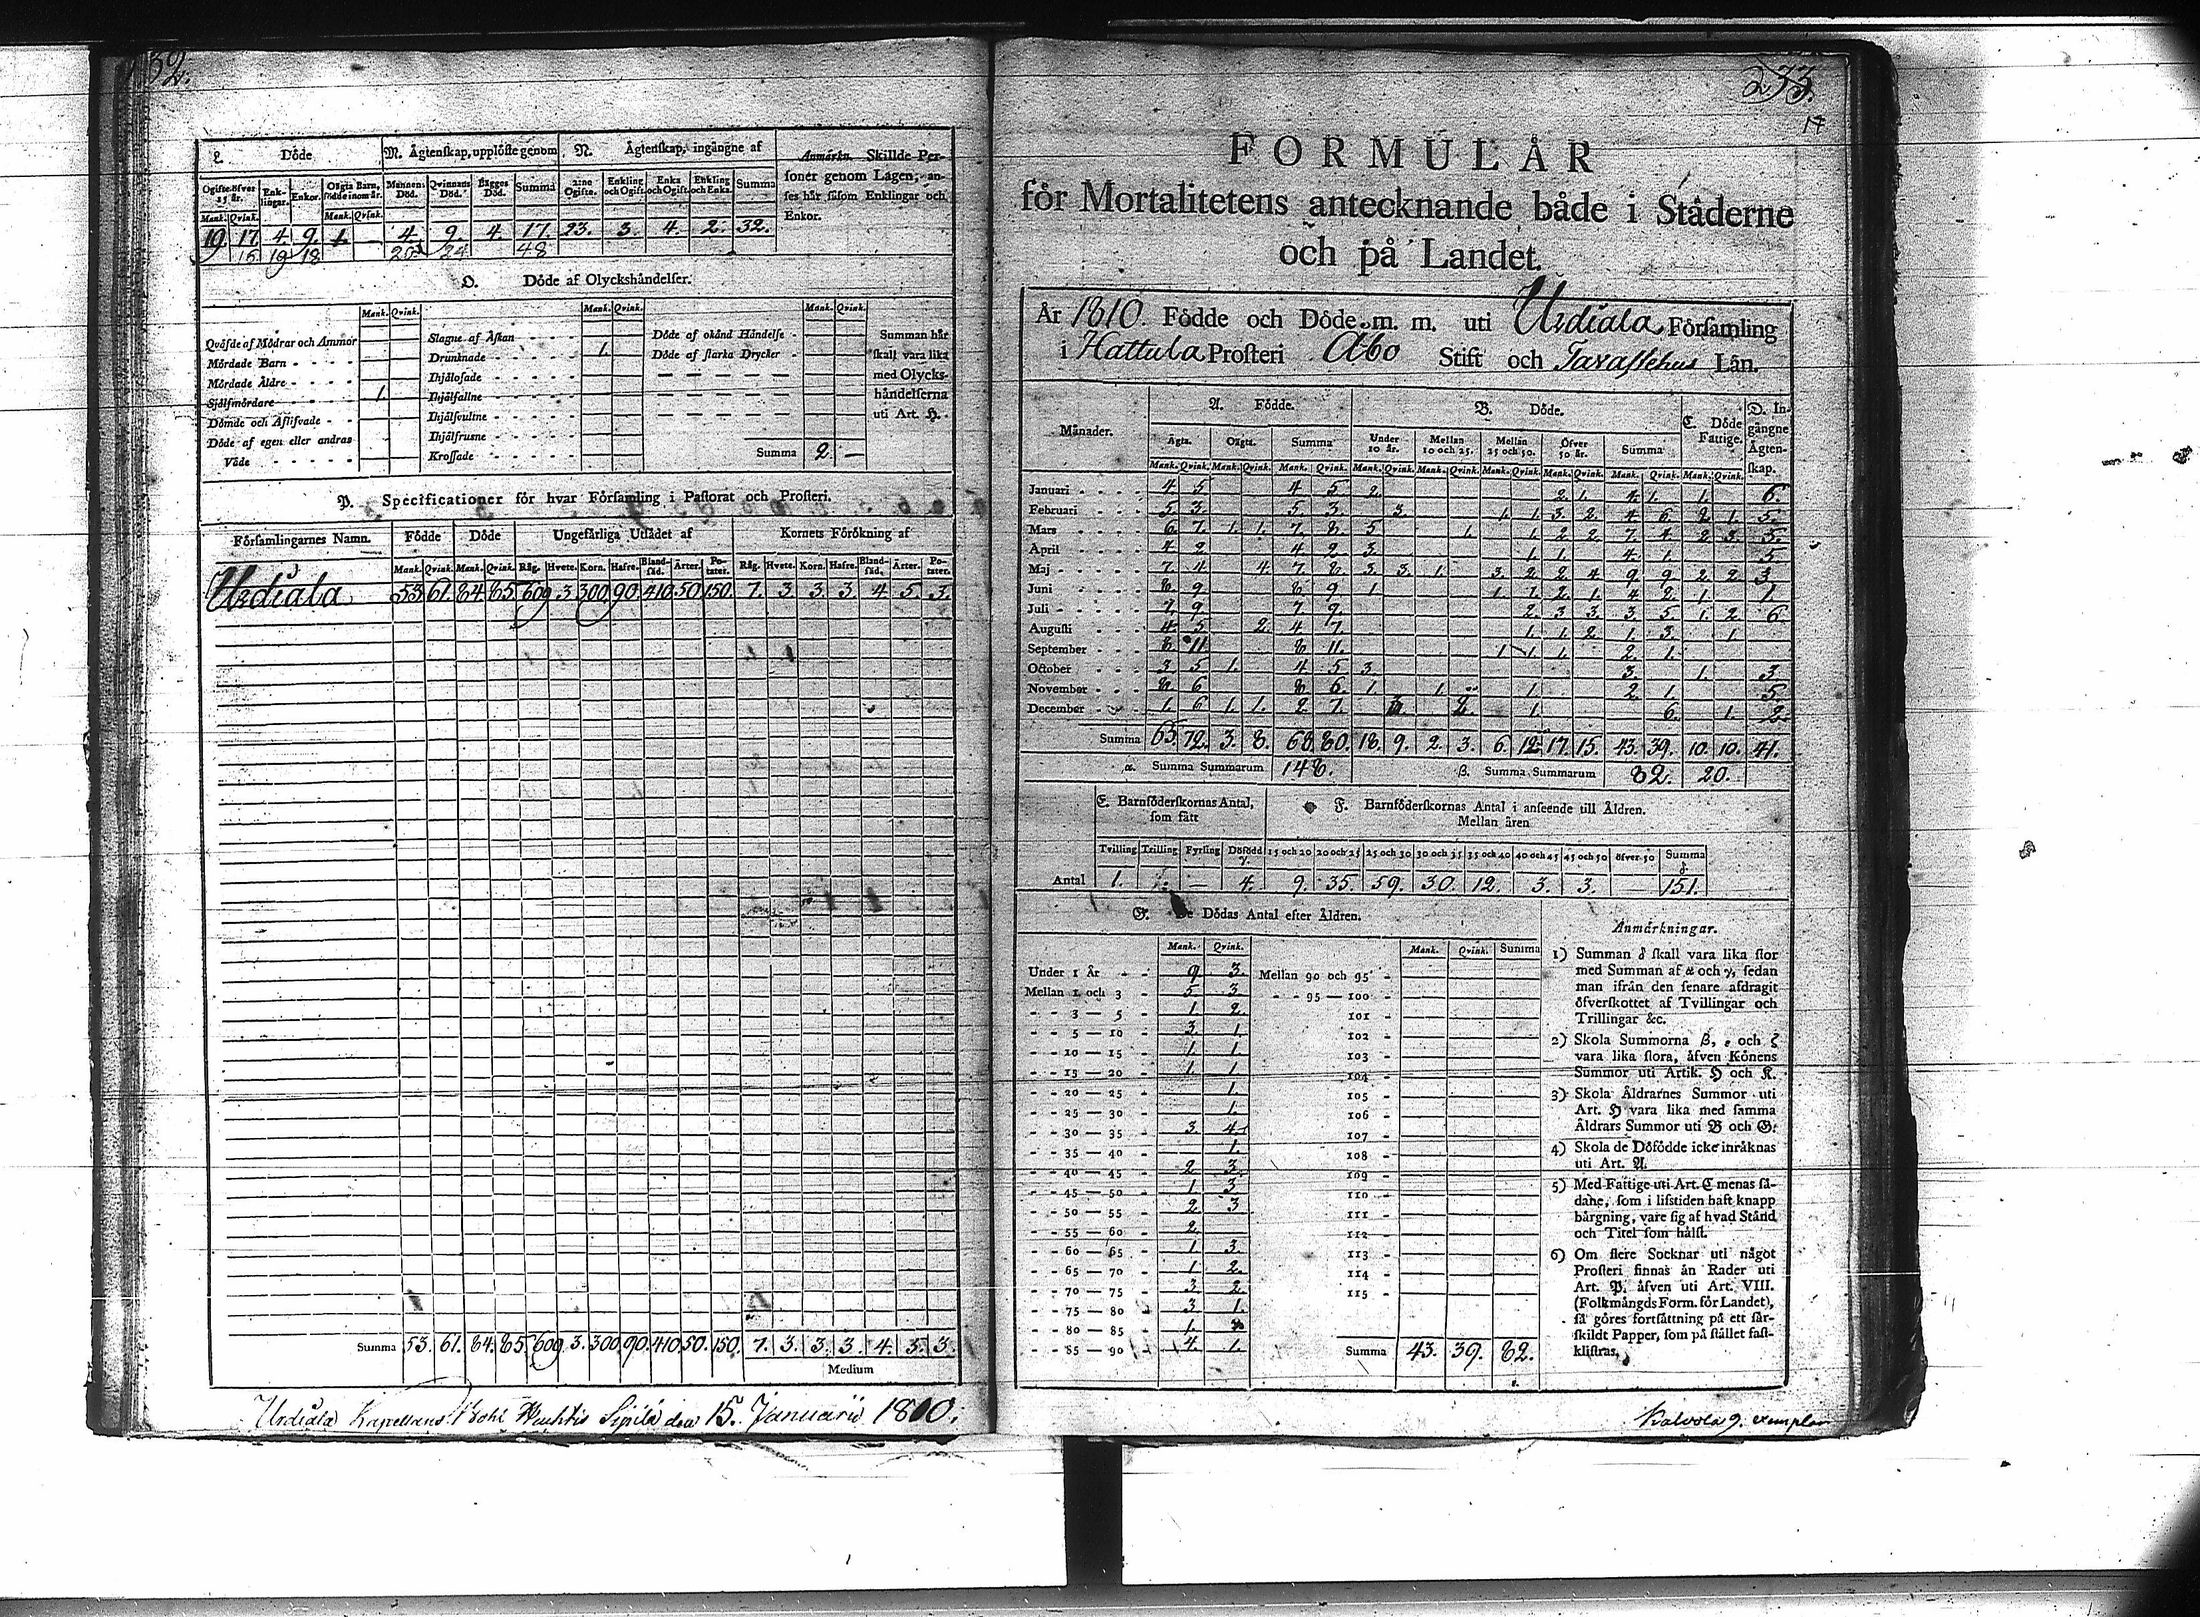 32.
L. Döde
M. Ägtenskap, uplöste genom
N. Ägtenskap, ingångne af
Anmärkn. Skillde Per-
soner genom Lagen, an-
ses här såsom Enklingar och
Enkor.
Ogifte öfver 15 år. Enk-lingar. Enkor. Oägta Barn, födde inom år. Mannens Död. Qvinnans Död. Bägges Död. Summa 2:ne Ogifte. Enkling och Ogift. Enka och Ogift. Enkling och Enka. Summa
Mank. Qvink. Mank. Qvink.
19. 17. 4. 9. 1. — 4. 9. 4. 17. 23. 3. 4. 2. 32.
16 19 18 24 48
O. Döde af Olyckshändelser.
Mank. Qvink. Mank. Qvink. Mank. Qvink.
Qväfde af Mödrar och Ammor
Mördade Barn
Mördade Äldre
Sjelfmördare 1.
Dömde och Aflifvade
Döde af egen eller andras
Våde
Slagne af Åskan
Drunknade 1.
Ihjälosade
Ihjälfallne
Ihjälsvultne
Ihjälfrusne
Krossade
Döde af okänd Händelse
Döde af starka Drycker
Summa 2. —
Summan här
skall vara lika
med Olycks-
händelserna
uti Art. H.
P. Specificationer för hvar Församling i Pastorat och Prosteri.
Församlingarnes Namn. Födde Döde Ungefärliga Utsädet af Kornets Förökning af
Mank. Qvink. Mank. Qvink. Råg. Hvete. Korn. Hafre. Bland-säd. Ärter. Po-tater. Råg. Hvete. Korn. Hafre. Bland-säd. Ärter. Po-tater.
Urdiala 53 61. 84. 85. 609 3 300 90. 410 50 150. 7. 3. 3. 3. 4. 5. 3.
Summa 53. 61. 84. 85. 609. 3. 300 90. 410 50. 150. 7. 3. 3. 3. 4. 5. 3.
Medium
Urdiala Kapellans den 15. Januarii 1810.
233.
17
FORMULÄR
för Mortalitetens antecknande både i Städerne
och på Landet.
År 1810. Födde och Döde m. m. uti Urdiala Församling
i Hattula Prosteri Åbo Stift och Tavastehus Län.
Månader. A. Födde. B. Döde. C. Döde Fattige. D. In-gångne Ägten-skap.
Ägta. Oägta. Summa Under 10 år. Mellan 10 och 25. Mellan 25 och 50. Öfver 50 år. Summa
Mank. Qvink. Mank. Qvink. Mank. Qvink. Mank. Qvink. Mank. Qvink. Mank. Qvink. Mank. Qvink. Mank. Qvink. Mank. Qvink.
Januari 4 5 4 5 2. 2. 1. 4 1. 1. 6.
Februari 5 3. 5 3. 3. 1. 1. 3. 2. 4 6 2 1. 5.
Mars 6 7. 1. 1. 7. 8. 5 1. 1. 2 2. 7. 4. 2 3. 5.
April 4 2 4 2 3. 1. 1. 4 1. 5.
Maj 7. 4 4. 7. 8. 3. 3. 1. 3. 2. 2. 4 9. 9 2. 2 3.
Juni 8 9. 8 9. 1 1. 1. 2. 1. 4 2. 1. 1
Juli 7. 9 7. 9. 2. 3 3. 3. 5. 1. 2. 6.
Augusti 4. 5 2. 4 7. 1. 1. 2. 1. 3. 1.
September 8 11. 8 11. 1 1. 1. 2. 1.
October 3 5 1. 4 5 3. 3. 1. 3.
November 8 6 8 6. 1. 1. 1. 2. 1. 5.
December 1. 6 1. 1. 2 7. 3. 2. 1. 6. 1. 2.
Summa 65. 72. 3. 8. 68. 80. 18. 9. 2. 3. 6. 12. 17. 15. 43. 39. 10. 10. 41.
α. Summa Summarum 148. β. Summa Summarum 82. 20.
E. Barnföderskornas Antal, som fått
F. Barnföderskornas Antal i anseende till Åldren.
Mellan åren
Tvilling Trilling Fyrling Dödfödd γ. 15 och 20 20 och 25 25 och 30 30 och 35 35 och 40 40 och 45 45 och 50 öfver 50 Summa δ
Antal 1. — 4. 9. 35. 59. 30. 12. 3. 3. 151.
G. De Dödas Antal efter Åldren.
Mank. Qvink. Mank. Qvink. Summa
Under 1 År 9. 3. Mellan 90 och 95
Mellan 1 och 3 5. 3 95 — 100
3 — 5 1. 2. 101
5 — 10 3. 1. 102
10 — 15 1. 1. 103
15 — 20 1. 1. 104
20 — 25 1. 105
25 — 30 1. 106
30 — 35 3. 4. 107
35 — 40 1. 108
40 — 45 2 3. 109
45 — 50 1 3. 110
50 — 55 2 3 111
55 — 60 2. 112
60 — 65 1 3. 113
65 — 70 1 2. 114
70 — 75 3. 2. 115
75 — 80 3. 1.
80 — 85 1.
85 — 90 4. 1. Summa 43. 39. 82.
Anmärkningar.
1) Summan δ skall vara lika stor
med Summan af α och γ, sedan
man ifrån den senare afdragit
öfverskottet af Tvillingar och
Trillingar &c.
2) Skola Summorna β, ε och ζ
vara lika stora, äfven Könens
Summor uti Artik. H och K.
3) Skola Åldrarnes Summor uti
Art. H vara lika med samma
Åldrars Summor uti B och G.
4) Skola de Döfödde icke inräknas
uti Art. A.
5) Med Fattige uti Art. C menas så-
dane, som i lifstiden haft knapp
bärgning, vare sig af hvad Stånd
och Titel som hälst.
6) Om flere Socknar uti något
Prosteri finnas än Rader uti
Art. P, äfven uti Art. VIII.
(Folkmängds Form. för Landet),
så göres fortsättning på ett sär-
skildt Papper, som på stället fast-
klistras.
Kalvola 9. exemplar